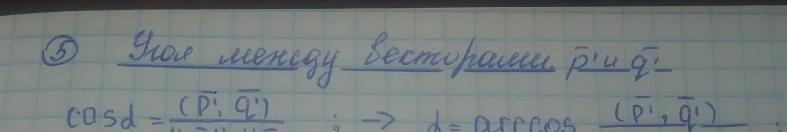 ⑤ Угол между векторами p̄' и q̄'
cos α = (p̄', q̄') ; → α = arccos (p̄', q̄') ;